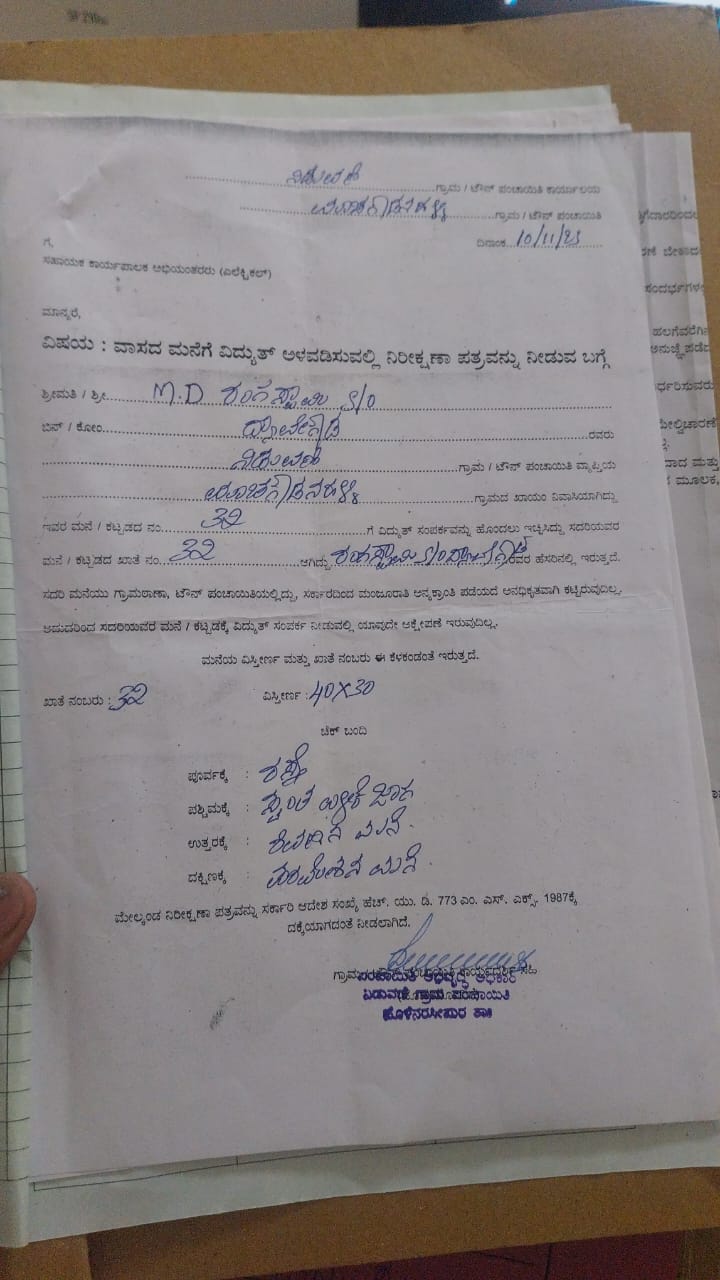 ಗ್ರಾಮ / ಟೌನ್ ಪಂಚಾಯಿತಿ ಕಾರ್ಯಾಲಯ
ಗ್ರಾಮ / ಟೌನ್ ಪಂಚಾಯಿತಿ
ದಿನಾಂಕ 10/11/23
ಗೆ,
ಸಹಾಯಕ ಕಾರ್ಯಪಾಲಕ ಅಭಿಯಂತರರು (ಎಲೆಕ್ಟ್ರಿಕಲ್)
ಮಾನ್ಯರೆ,
ವಿಷಯ : ವಾಸದ ಮನೆಗೆ ವಿದ್ಯುತ್ ಅಳವಡಿಸುವಲ್ಲಿ ನಿರೀಕ್ಷಣಾ ಪತ್ರವನ್ನು ನೀಡುವ ಬಗ್ಗೆ
ಶ್ರೀಮತಿ / ಶ್ರೀ M.D ರಂಗಸ್ವಾಮಿ S/O
ಬಿನ್ / ಕೋಂ ದ್ಯಾವೇಗೌಡ ರವರು
ಗ್ರಾಮ / ಟೌನ್ ಪಂಚಾಯಿತಿ ವ್ಯಾಪ್ತಿಯ
ಗ್ರಾಮದ ಖಾಯಂ ನಿವಾಸಿಯಾಗಿದ್ದು
ಇವರ ಮನೆ / ಕಟ್ಟಡದ ನಂ. 32 ಗೆ ವಿದ್ಯುತ್ ಸಂಪರ್ಕವನ್ನು ಹೊಂದಲು ಇಚ್ಛಿಸಿದ್ದು ಸದರಿಯವರ
ಮನೆ / ಕಟ್ಟಡದ ಖಾತೆ ನಂ. 32 ಆಗಿದ್ದು ರಂಗಸ್ವಾಮಿ S/O ದ್ಯಾವೇಗೌಡ ರವರ ಹೆಸರಿನಲ್ಲಿ ಇರುತ್ತದೆ.
ಸದರಿ ಮನೆಯು ಗ್ರಾಮಠಾಣಾ, ಟೌನ್ ಪಂಚಾಯಿತಿಯಲ್ಲಿದ್ದು, ಸರ್ಕಾರದಿಂದ ಮಂಜೂರಾತಿ ಅನ್ಯಕ್ರಾಂತಿ ಪಡೆಯದೆ ಅನಧಿಕೃತವಾಗಿ ಕಟ್ಟಿರುವುದಿಲ್ಲ.
ಆದುದರಿಂದ ಸದರಿಯವರ ಮನೆ / ಕಟ್ಟಡಕ್ಕೆ ವಿದ್ಯುತ್ ಸಂಪರ್ಕ ನೀಡುವಲ್ಲಿ ಯಾವುದೇ ಆಕ್ಷೇಪಣೆ ಇರುವುದಿಲ್ಲ.
ಮನೆಯ ವಿಸ್ತೀರ್ಣ ಮತ್ತು ಖಾತೆ ನಂಬರು ಈ ಕೆಳಕಂಡಂತೆ ಇರುತ್ತದೆ.
ಖಾತೆ ನಂಬರು : 32 ವಿಸ್ತೀರ್ಣ : 40X30
ಚೆಕ್ ಬಂದಿ
ಪೂರ್ವಕ್ಕೆ : ರಸ್ತೆ
ಪಶ್ಚಿಮಕ್ಕೆ : ಸ್ವಂತ ಜಾಗ
ಉತ್ತರಕ್ಕೆ : ಮನೆ.
ದಕ್ಷಿಣಕ್ಕೆ : ಪರಮೇಶನ ಮನೆ.
ಮೇಲ್ಕಂಡ ನಿರೀಕ್ಷಣಾ ಪತ್ರವನ್ನು ಸರ್ಕಾರಿ ಆದೇಶ ಸಂಖ್ಯೆ ಹೆಚ್. ಯು. ಡಿ. 773 ಎಂ. ಎಸ್. ಎಕ್ಸ್. 1987ಕ್ಕೆ
ದಕ್ಕೆಯಾಗದಂತೆ ನೀಡಲಾಗಿದೆ.
ಪಂಚಾಯಿತಿ ಅಭಿವೃದ್ಧಿ ಅಧಿಕಾರಿ
ಗ್ರಾಮ ಪಂಚಾಯಿತಿ
ಹೊಳೆನರಸೀಪುರ ತಾ||